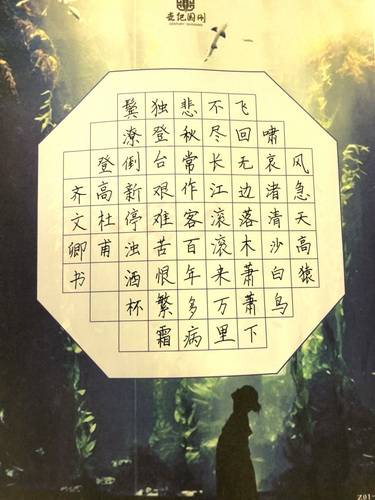 风急天高猿
啸哀渚清沙白鸟
飞回无边落木萧萧下
不尽长江滚滚来万里
悲秋常作客百年多病
独登台艰难苦恨繁霜
鬓潦倒新停浊酒杯
登高杜甫
齐文卿书